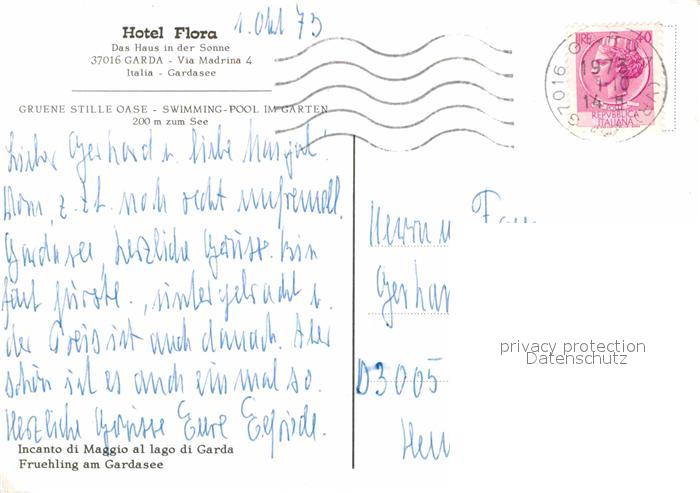 1. Okt 73
Hotel Flora
Das Haus in der Sonne
37016 GARDA - Via Madrina 4
Italia - Gardasee
GRUENE STILLE OASE - SWIMMING-POOL IM GARTEN
200 m zum See
Lieber Gerhard u. liebe Margot!
Vom, z. Zt. noch recht
Gardasee, herzliche Grüsse. Bin
untergebracht u.
der Preis ist auch danach. Aber
schön ist es auch einmal so.
Herzliche Grüsse Eure
Incanto di Maggio al lago di Garda
Fruehling am Gardasee
LIRE 40
REPVBBLICA
ITALIANA
37016 GARDA
1973
14
Herrn u
Gerhar
D3005
Hem
privacy protection
Datenschutz